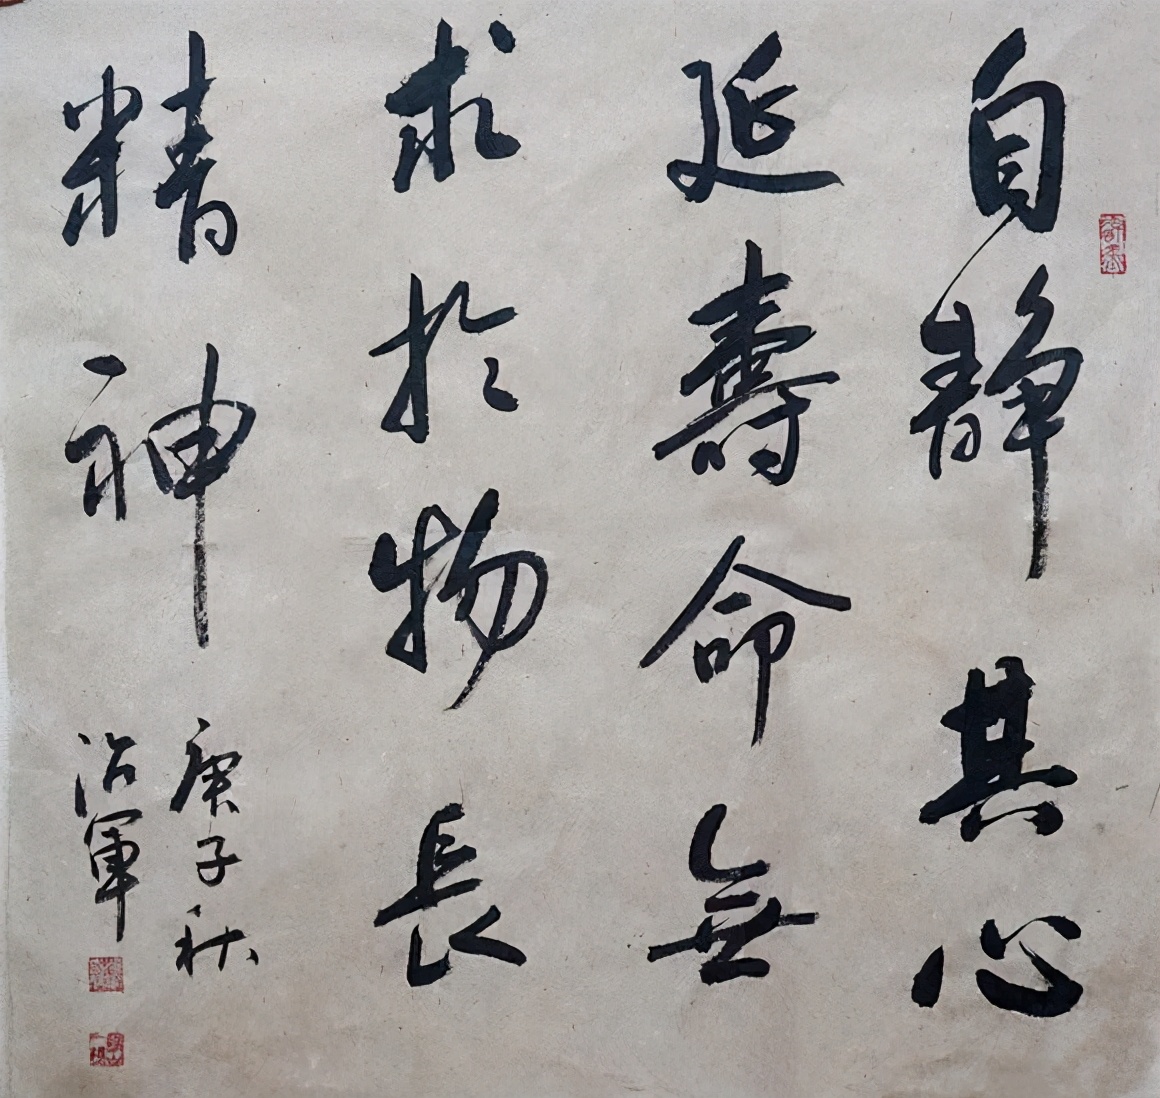 自静其心
延壽命無
求於物長
精神
庚子秋
治軍